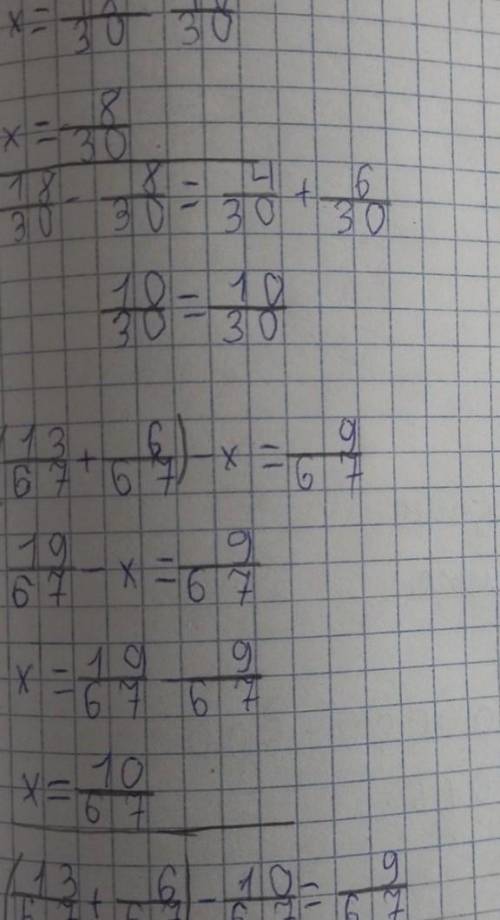 x = /30 - /30
x = 8/30
18/30 - 8/30 = 4/30 + 6/30
10/30 = 10/30
(13/67 + 6/67) - x = 9/67
19/67 - x = 9/67
x = 19/67 - 9/67
x = 10/67
(13/67 + 6/67) - 10/67 = 9/67